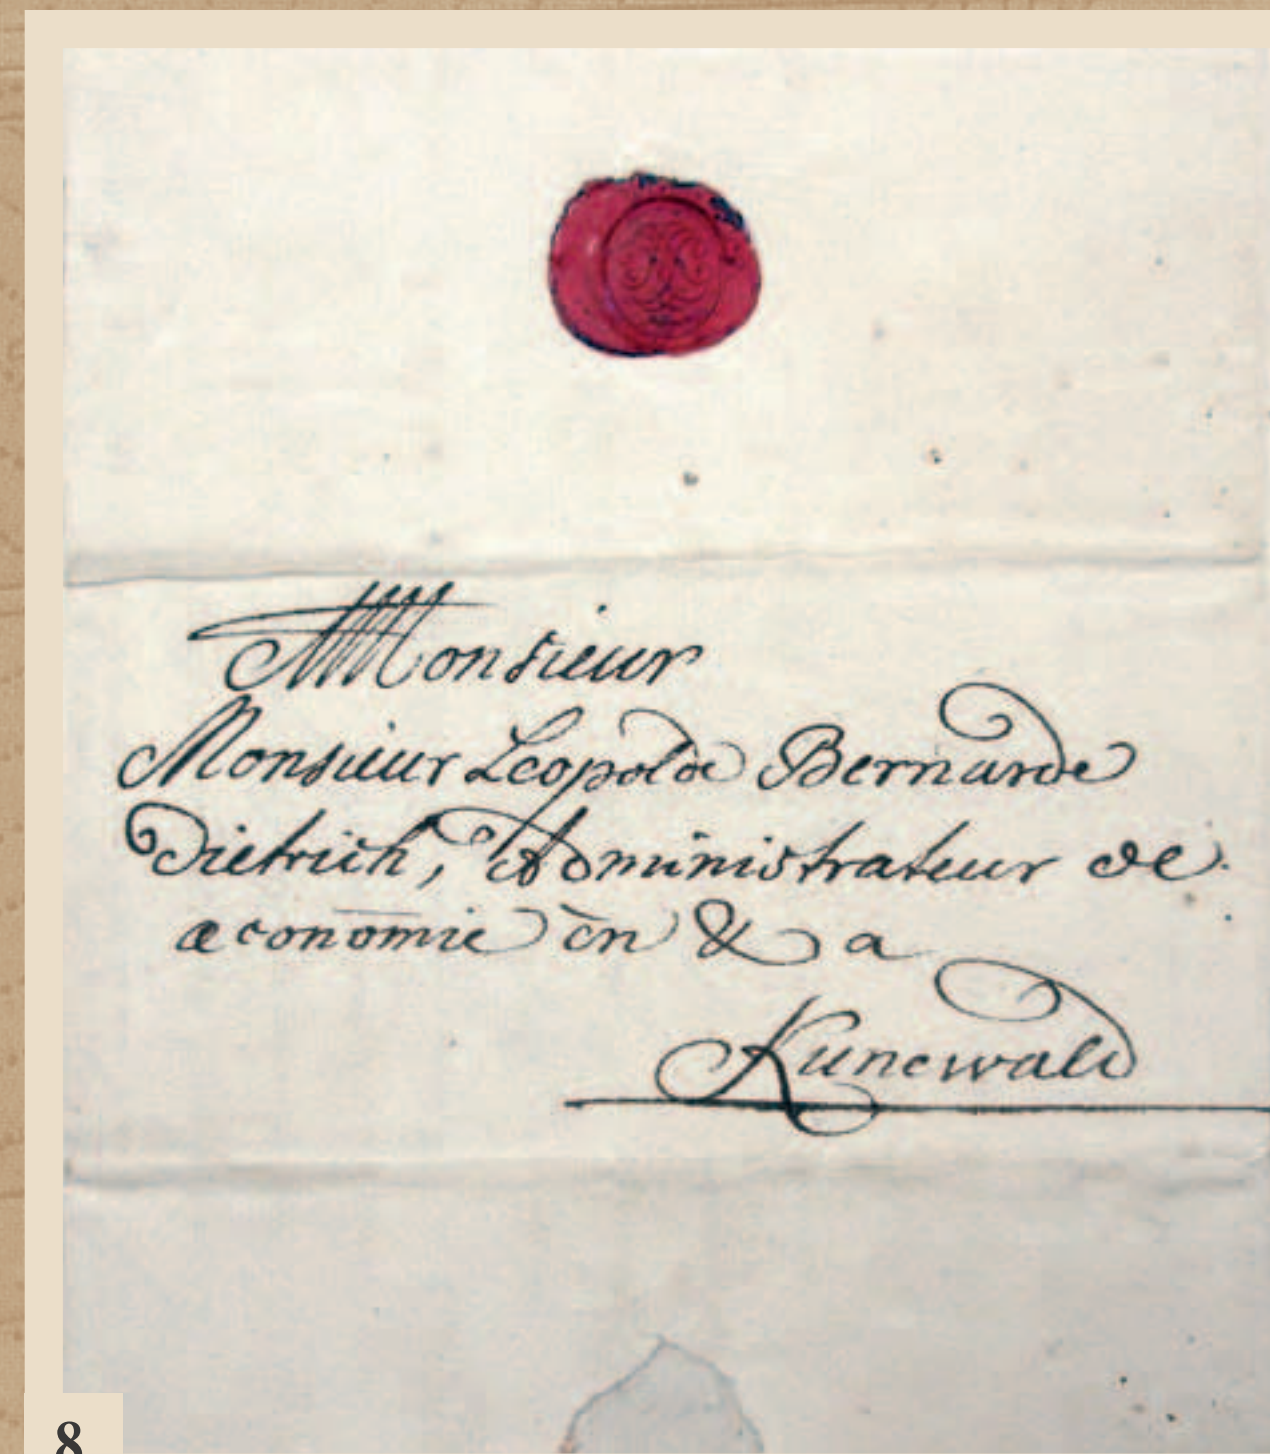 Monsieur
Monsieur Leopolde Bernarde
Dietrich, Administrateur de
œconomie en & a
Kunewald
8